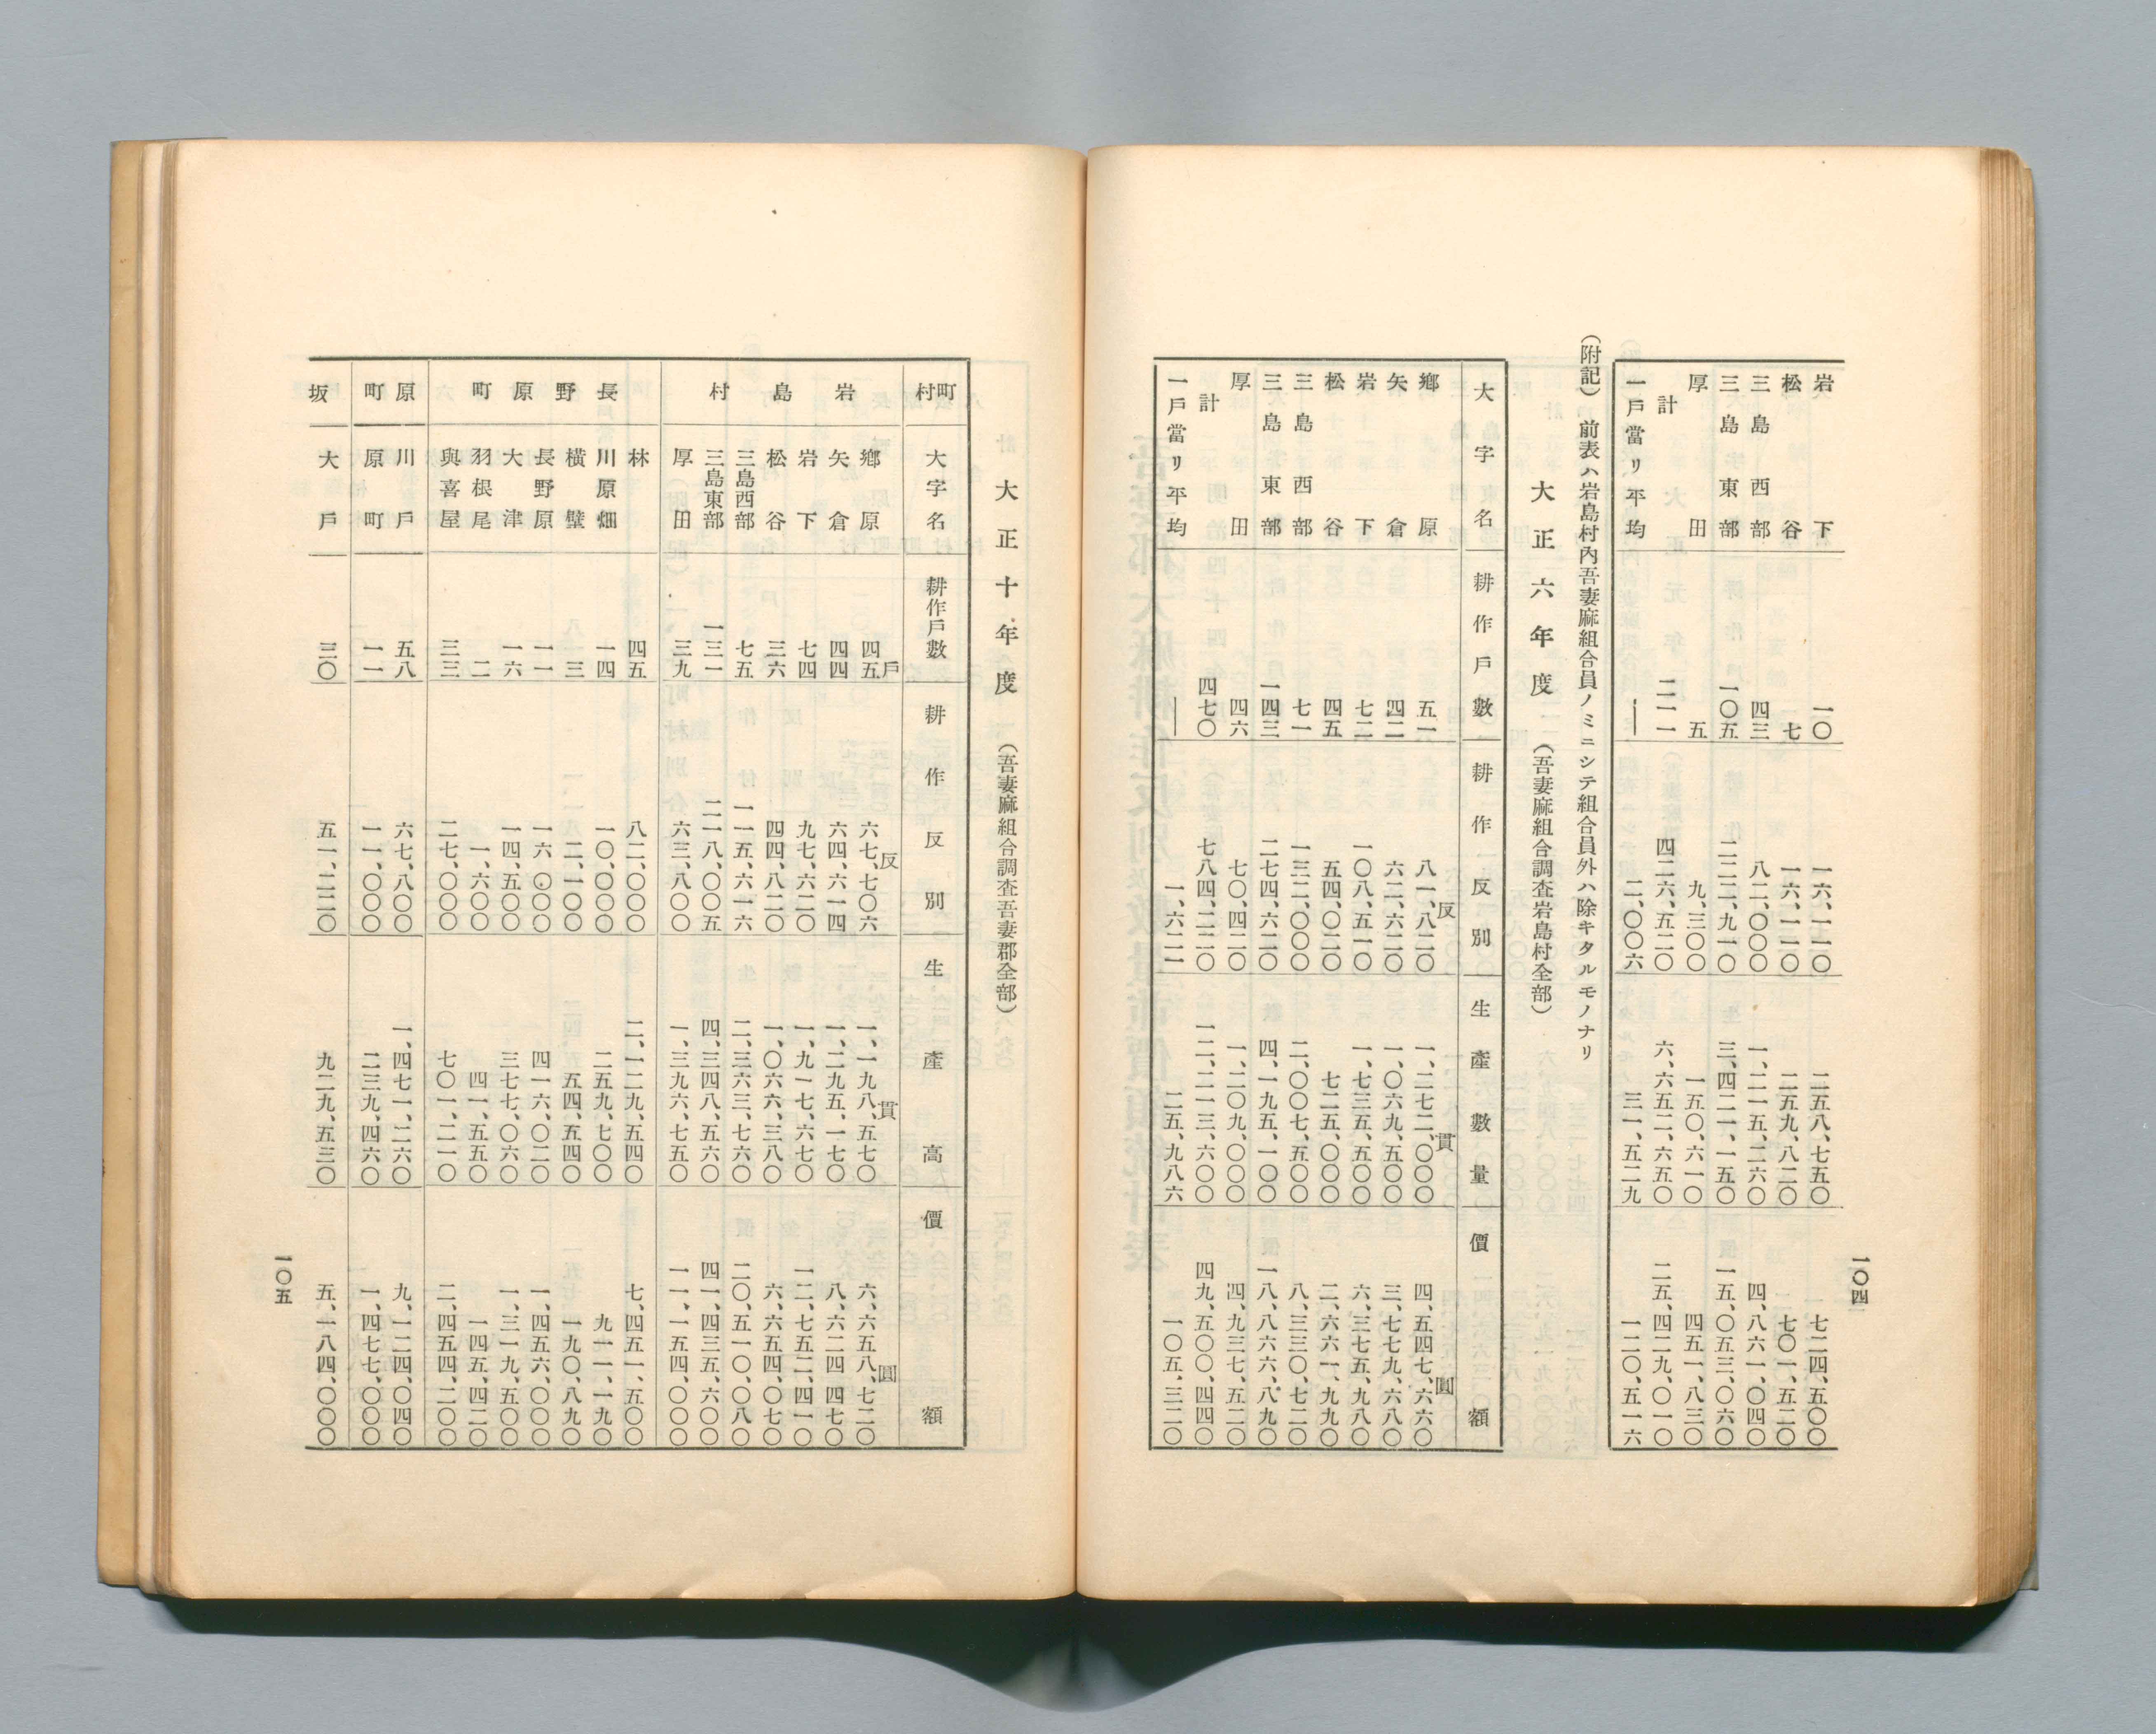 一〇四
岩下 一〇 一六、一一〇 二五八、七五〇 七二四、五〇〇
松谷 七 一六、一一〇 二五九、八二〇 七〇一、五二〇
三島西部 四三 八二、〇〇〇 一、二一五、二六〇 四、八六一、〇四〇
三島東部 一〇五 二二二、九一〇 三、四二一、一五〇 一五、〇五三、〇六〇
厚田 五 九、三〇〇 一五〇、六一〇 四五一、八三〇
計 二一一 四二六、五二〇 六、六五二、六五〇 二五、四二九、〇一〇
一戶當リ平均 ― 二、〇〇六 三一、五二九 一二〇、五一六
(附記) 前表ハ岩島村內吾妻麻組合員ノミニシテ組合員外ハ除キタルモノナリ
大正六年度 (吾妻麻組合調査岩島村全部)
大字名 耕作戶數 耕作反別 生產數量 價額
鄕原 五一 八一、八二〇反 一、二七二、〇〇〇貫 四、五四七、六六〇圓
矢倉 四二 六二、六二〇 一、〇六九、五〇〇 三、七七九、六八〇
岩下 七二 一〇八、五一〇 一、七三五、五〇〇 六、三七五、九八〇
松谷 四五 五四、〇二〇 七二五、〇〇〇 二、六六一、九九〇
三島西部 七一 一三二、〇〇〇 二、〇〇七、五〇〇 八、三三〇、七二〇
三島東部 一四三 二七四、六二〇 四、一九五、一〇〇 一八、八六六、八九〇
厚田 四六 七〇、四二〇 一、二〇九、〇〇〇 四、九三七、五二〇
計 四七〇 七八四、二二〇 一二、二一三、六〇〇 四九、五〇〇、四四〇
一戶當リ平均 ― 一、六二一 二五、九八六 一〇五、三二〇
大正十年度 (吾妻麻組合調査吾妻郡全部)
町村 大字名 耕作戶數 耕作反別 生產高 價額
岩島村 鄕原 四五戶 六七、七〇六反 一、一九八、五七〇貫 六、六五八、七二〇圓
矢倉 四四 六四、六一四 一、二九五、一七〇 八、六二四、四七〇
岩下 七四 九七、六二〇 一、九一七、六七〇 一二、七五二、四一〇
松谷 三六 四四、八二〇 一、〇六六、三八〇 六、六五四、〇七〇
三島西部 七五 一一五、六一六 二、三六三、七六〇 二〇、五一〇、〇八〇
三島東部 一三一 二一八、〇〇五 四、三四八、五六〇 四一、四三五、六〇〇
厚田 三九 六三、八〇〇 一、三九六、七五〇 一一、一五四、〇〇〇
長野原町 林 四五 八二、〇〇〇 二、一二九、五四〇 七、四五一、五〇〇
川原畑 一四 一〇、〇〇〇 二五九、七〇〇 九一一、一九〇
橫壁 三 二、一〇〇 五四、五四〇 一九〇、八九〇
長野原 一一 一六、〇〇〇 四一六、〇二〇 一、四五六、〇〇〇
大津 一六 一四、五〇〇 三七七、〇六〇 一、三一九、五〇〇
羽根尾 二 一、六〇〇 四一、五五〇 一四五、四二〇
與喜屋 三三 二七、〇〇〇 七〇一、二一〇 二、四五四、二〇〇
原町 川戶 五八 六七、八〇〇 一、四七一、二六〇 九、一二四、〇四〇
町 原町 一一 一一、〇〇〇 二三九、四六〇 一、四七七、〇〇〇
坂 大戶 三〇 五一、二二〇 九二九、五三〇 五、一八四、〇〇〇
一〇五